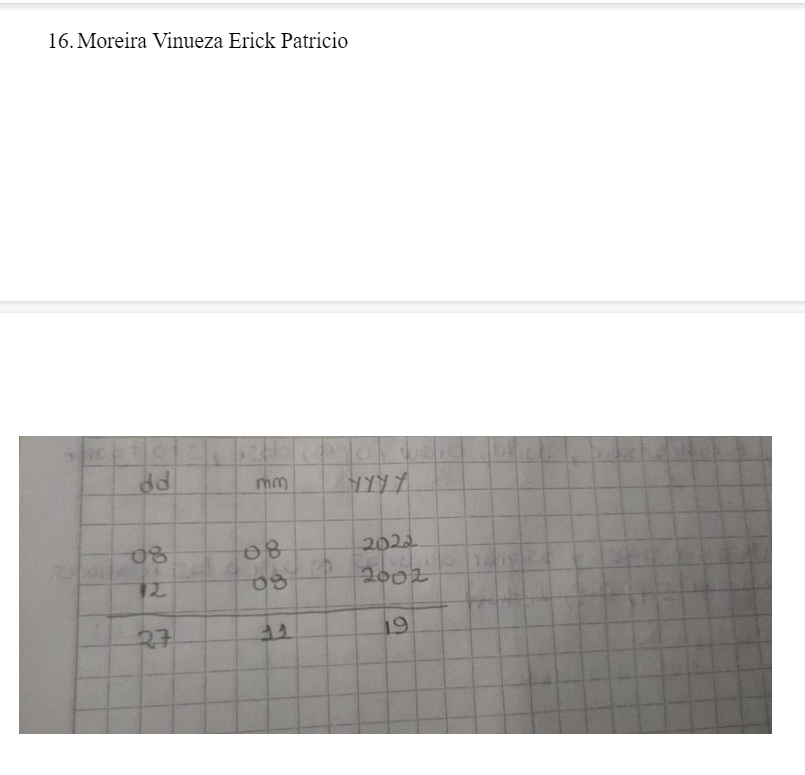 16. Moreira Vinueza Erick Patricio
dd mm yyyy
08 08 2022
12 08 2002
27 11 19